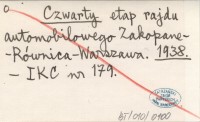 Czwarty etap rajdu
automobilowego Zakopane-
-Równica-Warszawa. 1938.
- IKC nr 179.
BJ/010/0100